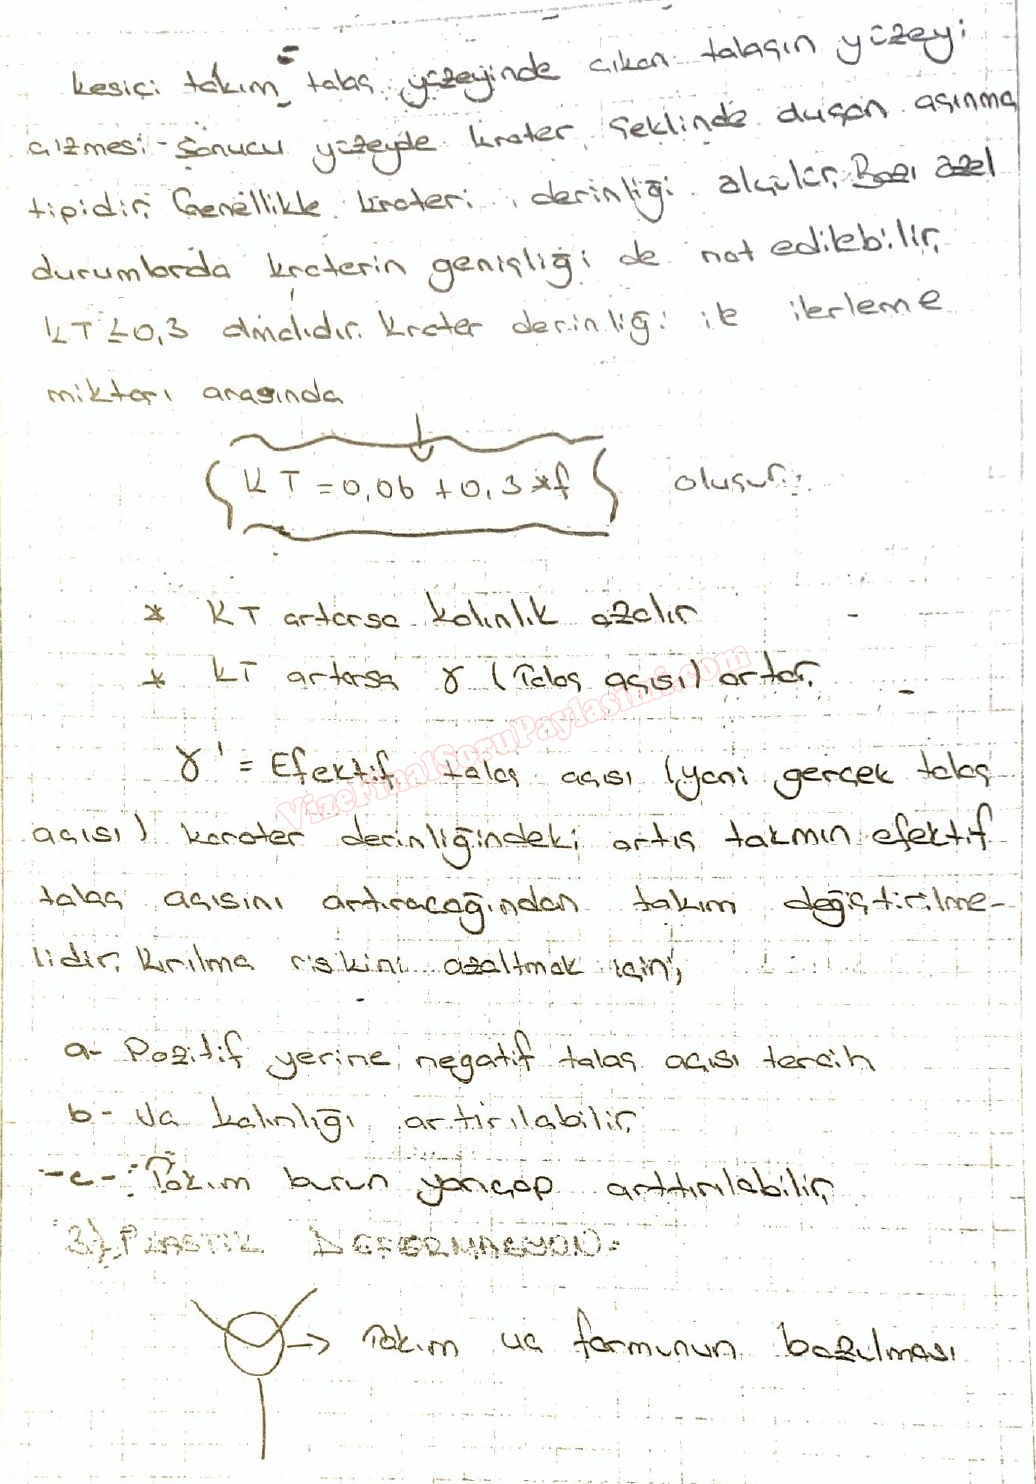 kesici takım talaş yüzeyinde çıkan talaşın yüzeyi
çizmesi sonucu yüzeyde krater şeklinde düşen aşınma
tipidir. Genellikle krateri derinliği ölçülür. Bazı özel
durumlarda kraterin genişliği de not edilebilir.
KT ≤ 0,3 olmalıdır. Krater derinliği ile ilerleme
miktarı arasında
KT = 0,06 + 0,3 * f oluşur.
* KT artarsa kalınlık azalır
* KT artarsa γ (Talaş açısı) artar.
VizeFinalSoruPaylasimi.com
γ' = Efektif talaş açısı (yani gerçek talaş
açısı) karater derinliğindeki artış takımın efektif
talaş açısını artıracağından takım değiştirilme-
lidir. Kırılma riskini azaltmak için;
a- Pozitif yerine negatif talaş açısı tercih
b- Uç kalınlığı artırılabilir.
-c- Takım burun yarıçap arttırılabilir.
3) PLASTİK DEFORMASYON:
→ Takım uç formunun bozulması